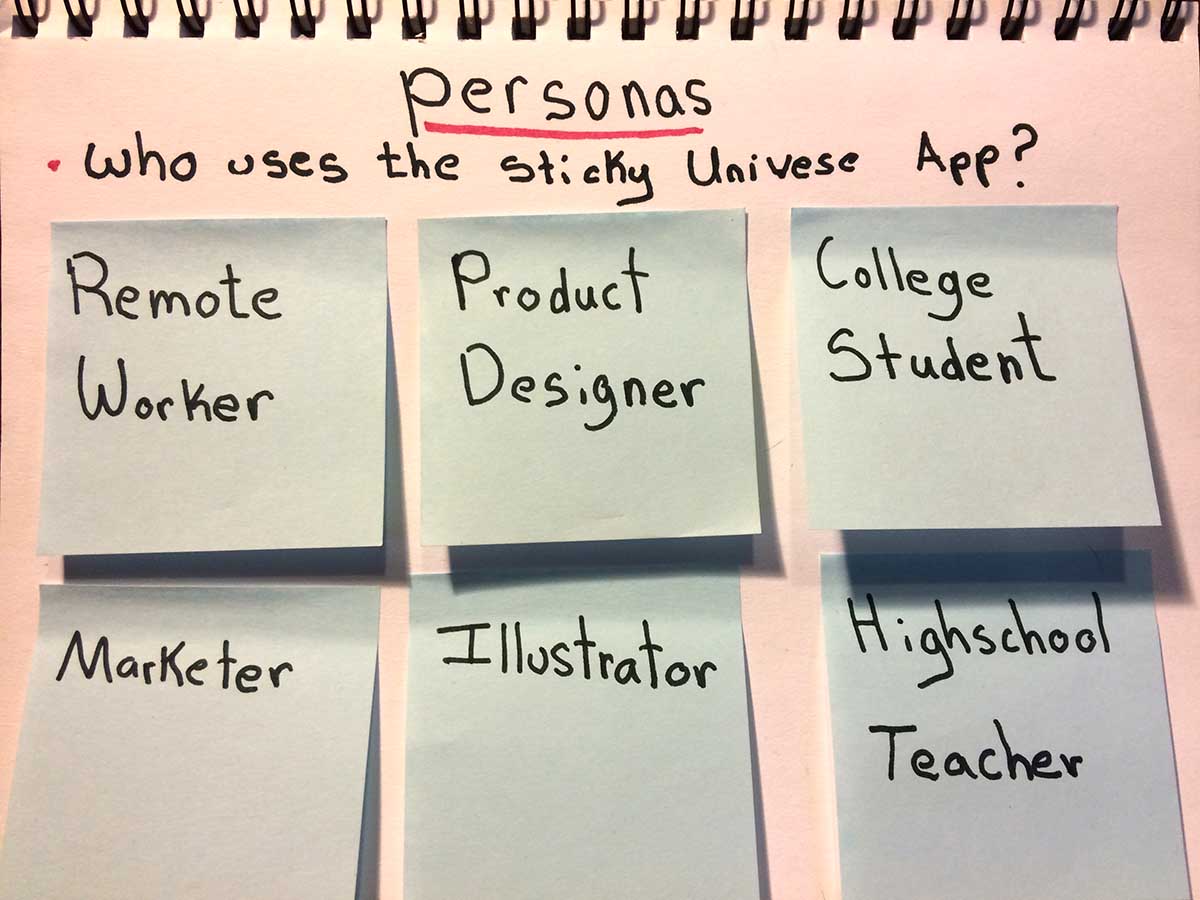 Personas
• Who uses the sticky Univese App?
Remote
Worker
Product
Designer
College
Student
Marketer
Illustrator
Highschool
Teacher